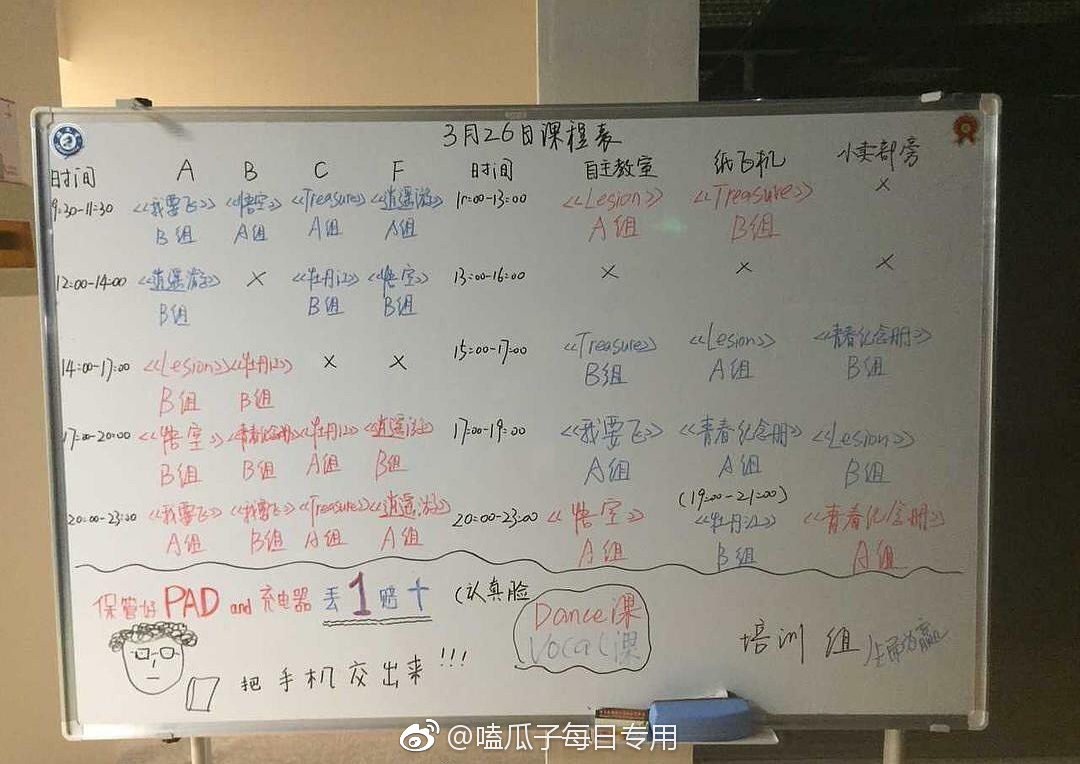 3月26日课程表
时间 A B C F 时间 自主教室 纸飞机 小卖部旁
9:30-11:30 <<我要飞>> <<悟空>> <<Treasure>> <<逍遥游>> 11:00-13:00 <<Lesion>> <<Treasure>> ×
B组 A组 A组 A组 A组 B组
12:00-14:00 <<逍遥游>> × <<牡丹江>> <<悟空>> 13:00-16:00 × × ×
B组 B组 B组
14:00-17:00 <<Lesion>> <<牡丹江>> × × 15:00-17:00 <<Treasure>> <<Lesion>> <<青春纪念册>>
B组 B组 B组 A组 B组
17:00-20:00 <<悟空>> <<青春纪念册>> <<牡丹江>> <<逍遥游>> 17:00-19:00 <<我要飞>> <<青春纪念册>> <<Lesion>>
B组 B组 A组 B组 A组 A组 B组
(19:00-21:00)
20:00-23:00 <<我要飞>> <<我要飞>> <<Treasure>> <<逍遥游>> 20:00-23:00 <<悟空>> <<牡丹江>> <<青春纪念册>>
A组 B组 A组 A组 A组 B组 A组
保管好PAD and 充电器 丢1赔十 (认真脸
Dance课
Vocal课
把手机交出来!!!
培训组
@嗑瓜子每日专用